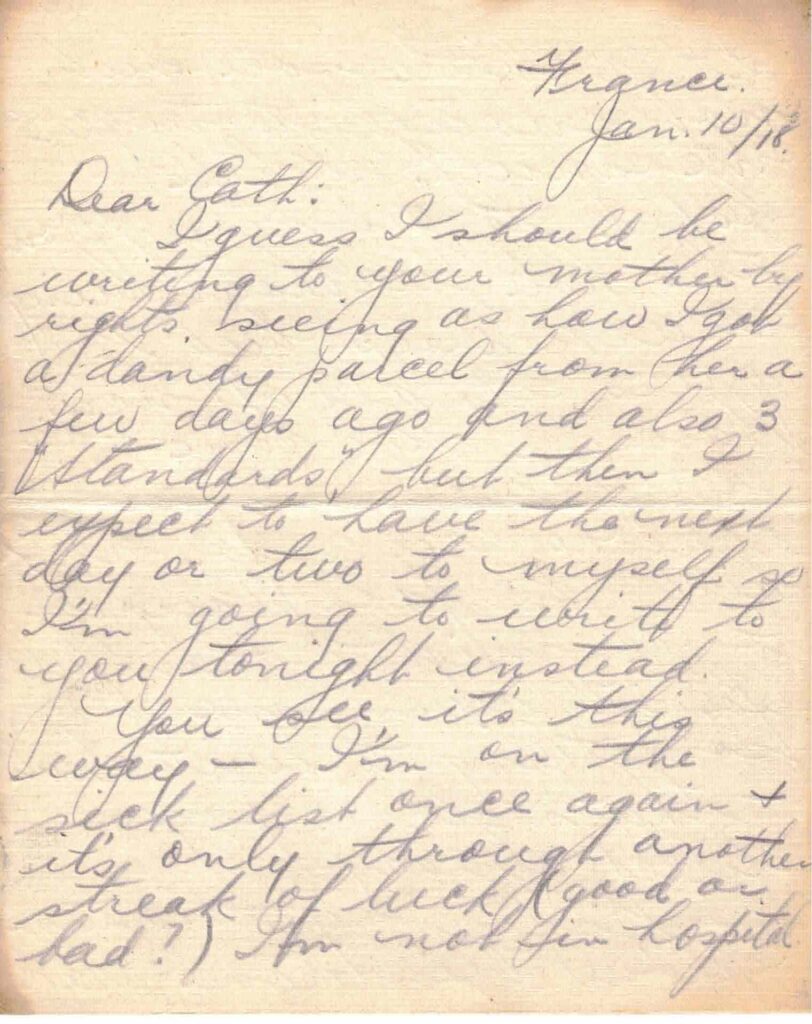 France.
Jan. 10/18.
Dear Cath:
I guess I should be
writing to your mother by
rights seeing as how I got
a dandy parcel from her a
few days ago and also 3
"Standards" but then I
expect to have the next
day or two to myself so
I'm going to write to
you tonight instead.
You see it's this
way — I'm on the
sick list once again +
it's only through another
streak of luck (good or
bad?) I'm not in hospital